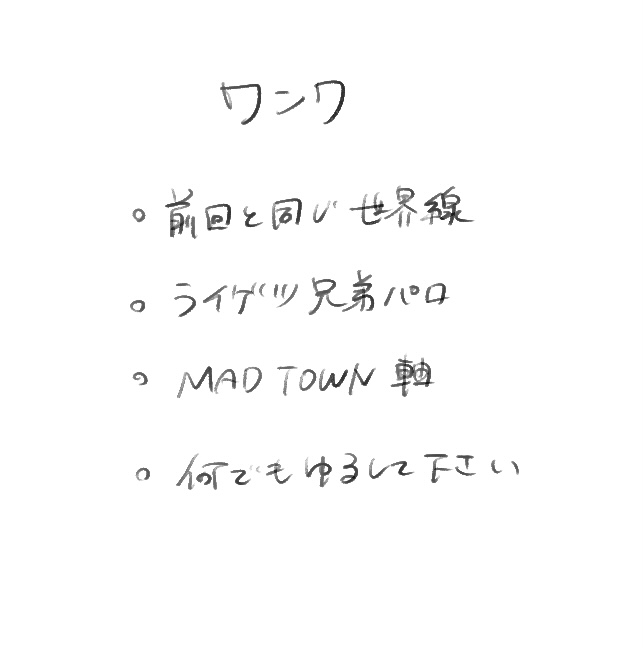 ワンワ
。前回と同じ世界線
。ライゲツ兄弟パロ
。MAD TOWN 軸
。何でもゆるして下さい